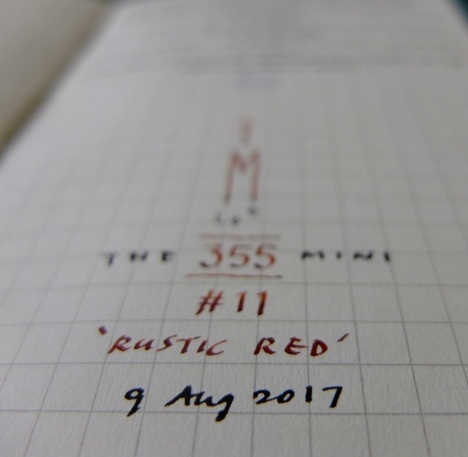 M
THE 355 MINI
#11
'RUSTIC RED'
9 Aug 2017